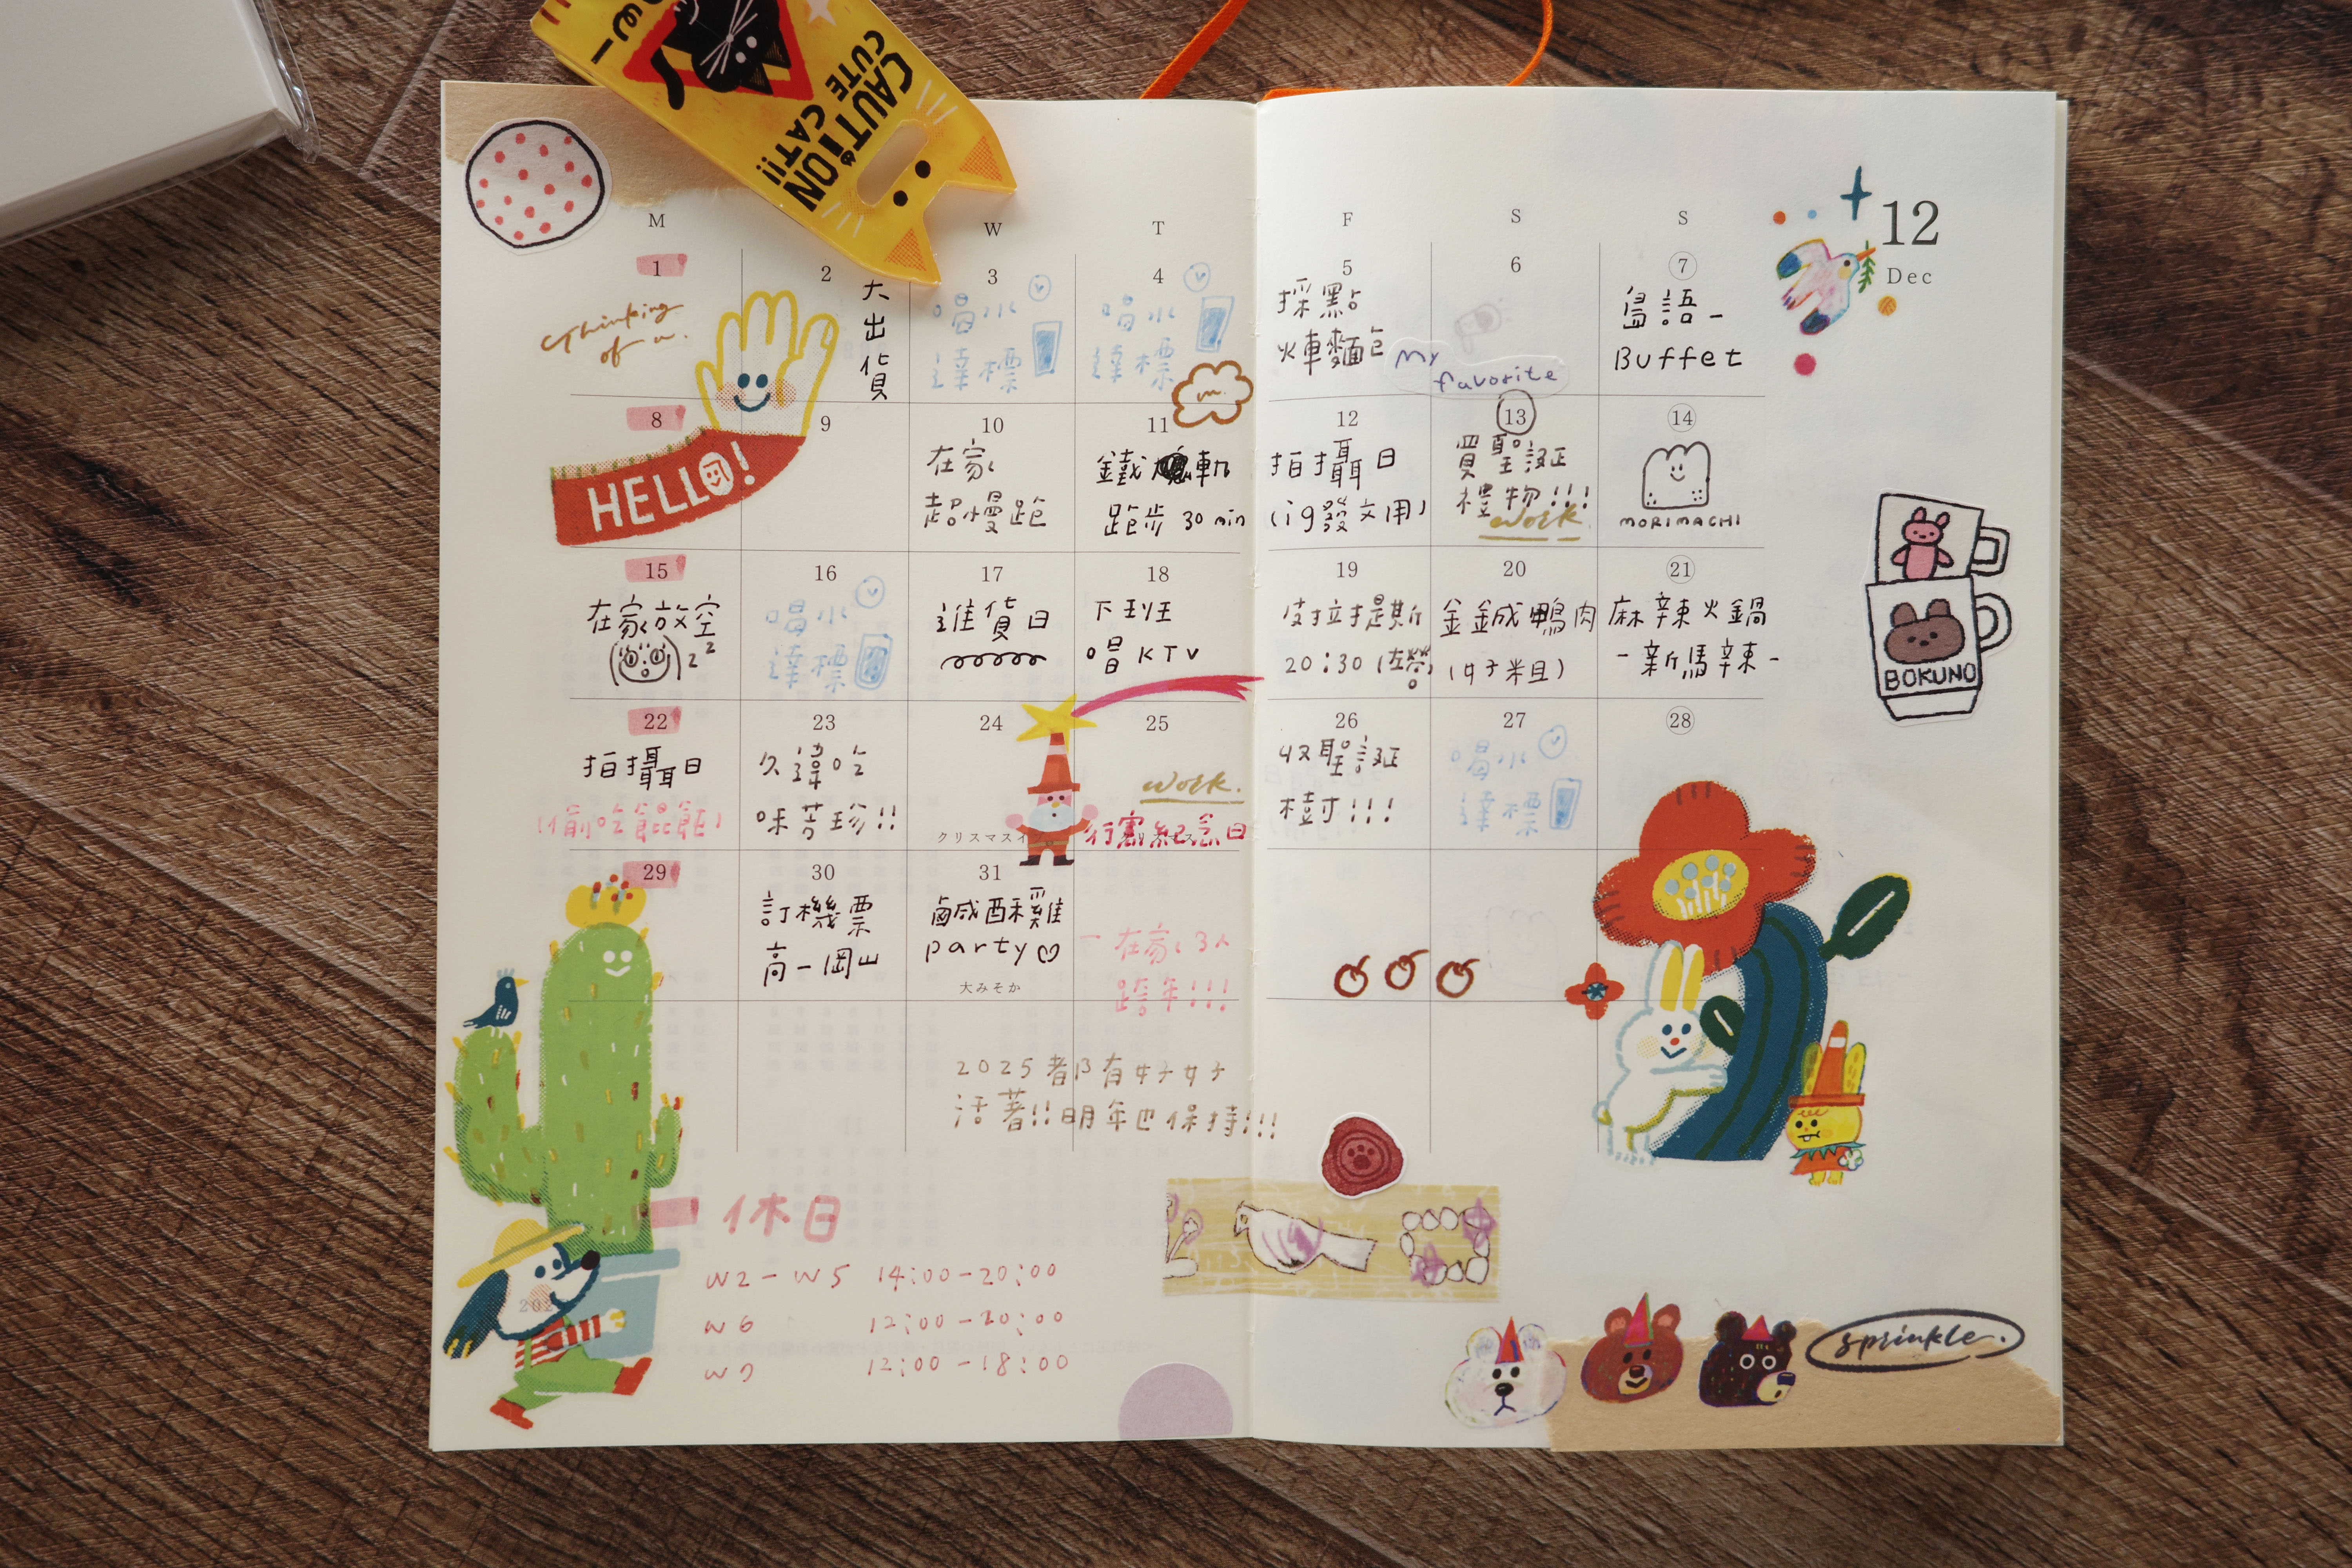 CAUTION
CUTE CAT!!
12
Dec
M W T F S S
1 2 3 4 5 6 7
Thinking
of u.
大
出
貨
喝水
達標
喝水
達標
採點
火車麵包
My
favorite
鳥語-
Buffet
8 9 10 11 12 13 14
HELLO!
在家
超慢跑
m.
鐵軌
跑步 30 min
拍攝日
(ig發文用)
買聖誕
禮物!!!
work.
MORIMACHI
15 16 17 18 19 20 21
在家放空
z z
喝水
達標
進貨日
下班
唱 KTV
皮拉提斯
20:30 (左營)
金鋮鴨肉
(好米且)
麻辣火鍋
-新馬辣-
BOKUNO
22 23 24 25 26 27 28
拍攝日
久違吃
味芳珍!!
クリスマスイ
work.
行憲紀念日
收聖誕
樹!!!
喝水
達標
29 30 31
訂機票
高-岡山
鹹酥雞
party
大みそか
- 在家3人
跨年!!!
2025 都有好好
活著!!明年也保持!!!
休日
W2-W5 14:00-20:00
W6 12:00-20:00
W7 12:00-18:00
202
sprinkle.